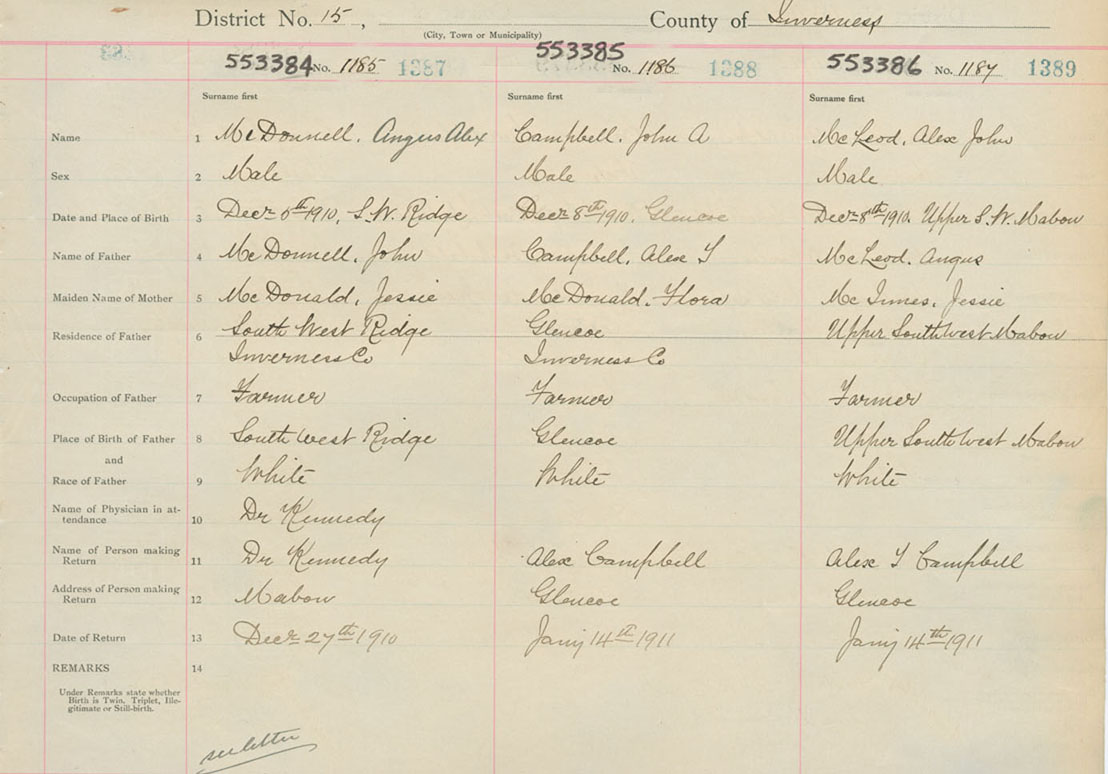 District No. 15, County of Inverness
(City, Town or Municipality)
553384 No. 1185 1387 553385 No. 1186 1388 553386 No. 1187 1389
Surname first Surname first Surname first
Name 1 McDonnell. Angus Alex Campbell. John A McLeod. Alex John
Sex 2 Male Male Male
Date and Place of Birth 3 Decr 5th 1910, S.W. Ridge Decr 8th 1910. Glencoe Decr 8th 1910, Upper S.W. Mabou
Name of Father 4 McDonnell. John Campbell. Alex McLeod. Angus
Maiden Name of Mother 5 McDonald, Jessie McDonald. Flora McInnes, Jessie
Residence of Father 6 South West Ridge Glencoe Upper Southwest Mabou
Inverness Co Inverness Co
Occupation of Father 7 Farmer Farmer Farmer
Place of Birth of Father 8 South West Ridge Glencoe Upper Southwest Mabou
and
Race of Father 9 White White White
Name of Physician in at-
tendance 10 Dr Kennedy
Name of Person making
Return 11 Dr Kennedy Alex Campbell Alex Campbell
Address of Person making
Return 12 Mabou Glencoe Glencoe
Date of Return 13 Decr 27th 1910 Jany 14th 1911 Jany 14th 1911
REMARKS 14
Under Remarks state whether
Birth is Twin, Triplet, Ille-
gitimate or Still-birth.
see letter